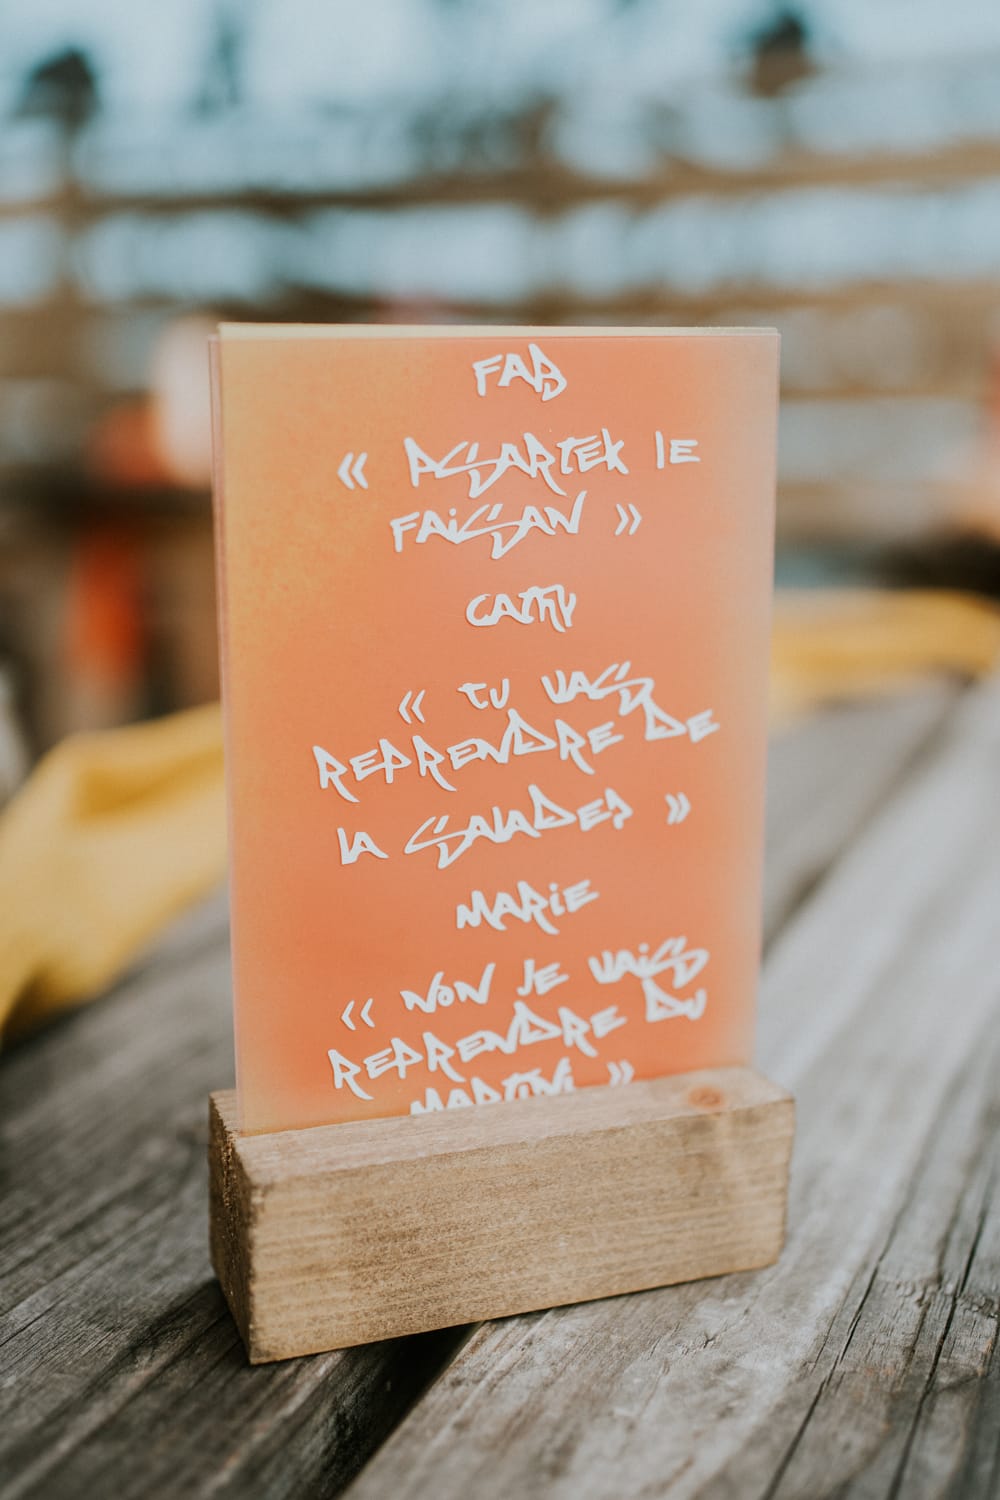 FAB
« ASARTEK LE
FAiSAN »
CATHY
« TU VAS
REPRENDRE DE
LA SALADE? »
MARiE
« NON JE VAiS
REPRENDRE DU
MARTiNi »